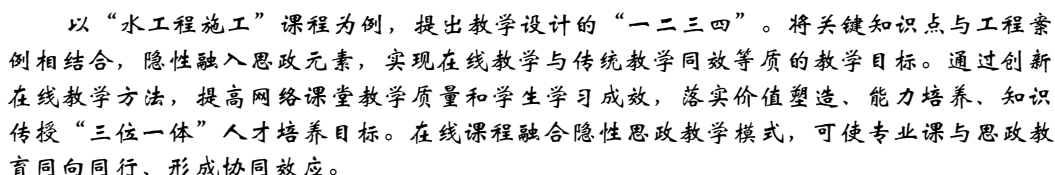 以“水工程施工”课程为例，提出教学设计的“一二三四”。将关键知识点与工程案
例相结合，隐性融入思政元素，实现在线教学与传统教学同效等质的教学目标。通过创新
在线教学方法，提高网络课堂教学质量和学生学习成效，落实价值塑造、能力培养、知识
传授“三位一体”人才培养目标。在线课程融合隐性思政教学模式，可使专业课与思政教
育同向同行、形成协同效应。